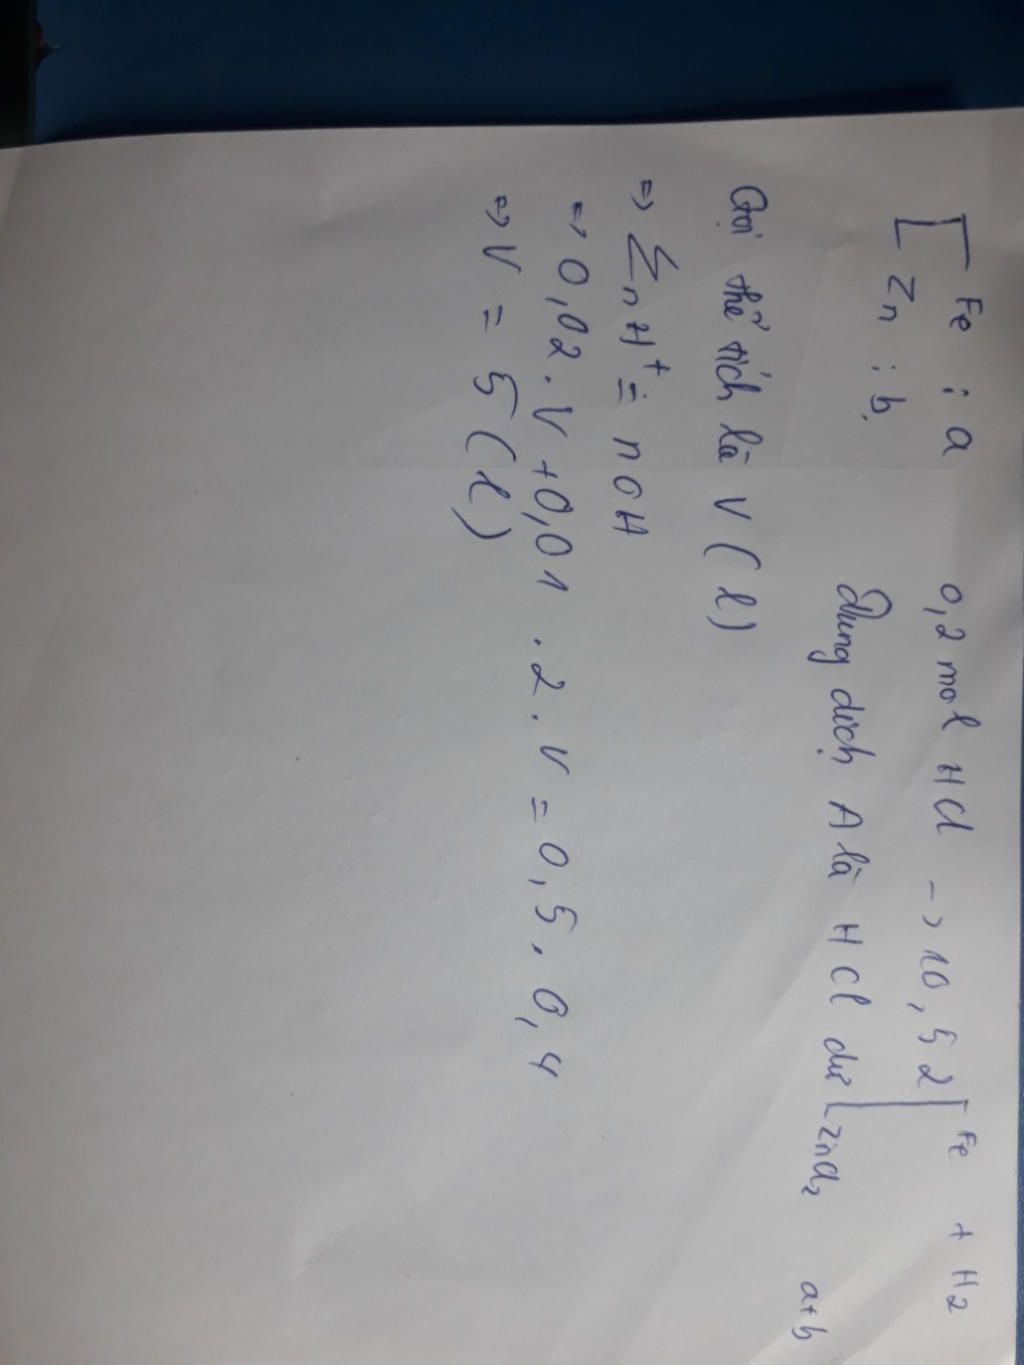 [ Fe : a    0,2 mol HCl -> 10,52 [ Fe + H2
Zn : b    dung dịch A là HCl dư [ ZnCl2    a+b
Gọi thể tích là V (l)
=> ΣnH+ = nOH
=> 0,02 . V + 0,01 . 2 . V = 0,5 . 0,4
=> V = 5 (l)